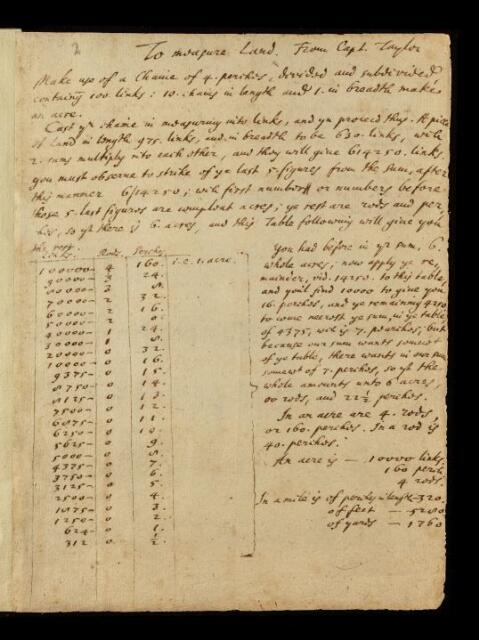 2
To measure Land. From Capt. Taylor
Make use of a Chaine of 4. perches, devided and subdivided,
containing 100 links: 10. chains in length and 1. in breadth make
an acre.
Cast yr chaine in measuring into links, and yn proceed thus. A piece
of Land in length 975. links, and in breadth to be 630. links, wch
2. sums multiply into each other, and they will give 614250. links.
you must observe to strike of ye last 5. figures from the sum, after
this manner 6/14250; wch first number or numbers before
those 5. last figures are compleat acres; ye rest are rods and per,
ches, so yt there is 6. acres, and this Table following will give you
the rest.
Links. Rods. Perches.
100000 - 4 160. i.e. 1. acre.
90000 - 3 24.
80000 - 3 8.
70000 - 2 32.
60000 - 2 16.
50000 - 2 0.
40000 - 1 24.
30000 - 1 8.
20000 - 0 32.
10000 - 0 16.
9375 - 0 15.
8750 - 0 14.
8125 - 0 13.
7500 - 0 12.
6875 - 0 11.
6250 - 0 10.
5625 - 0 9.
5000 - 0 8.
4375 - 0 7.
3750 - 0 6.
3125 - 0 5.
2500 - 0 4.
1875 - 0 3.
1250 - 0 2.
624 - 0 1.
312 0 ½.
You had before in yr sum, 6.
whole acres; now apply ye re,
mainder, vid. 14250. to this table,
and you'l find 10000 to give you
16. perches, and ye remaining 4250
to come nearest ye sum, in ye table
of 4375, wch is 7. pearches; but
because our sum wants somewt
of ye table, there wants in our sum
somewt of 7. perches, so yt the
whole amounts unto 6 acres,
00 rods, and 22½ perches.
In an acre are 4. rods,
or 160. perches. In a rod is
40. perches.
An acre is - 10000 links
160 perch.
4 rods.
In a mile is of perches in length - 320.
of feet - 5280
of yards - 1760